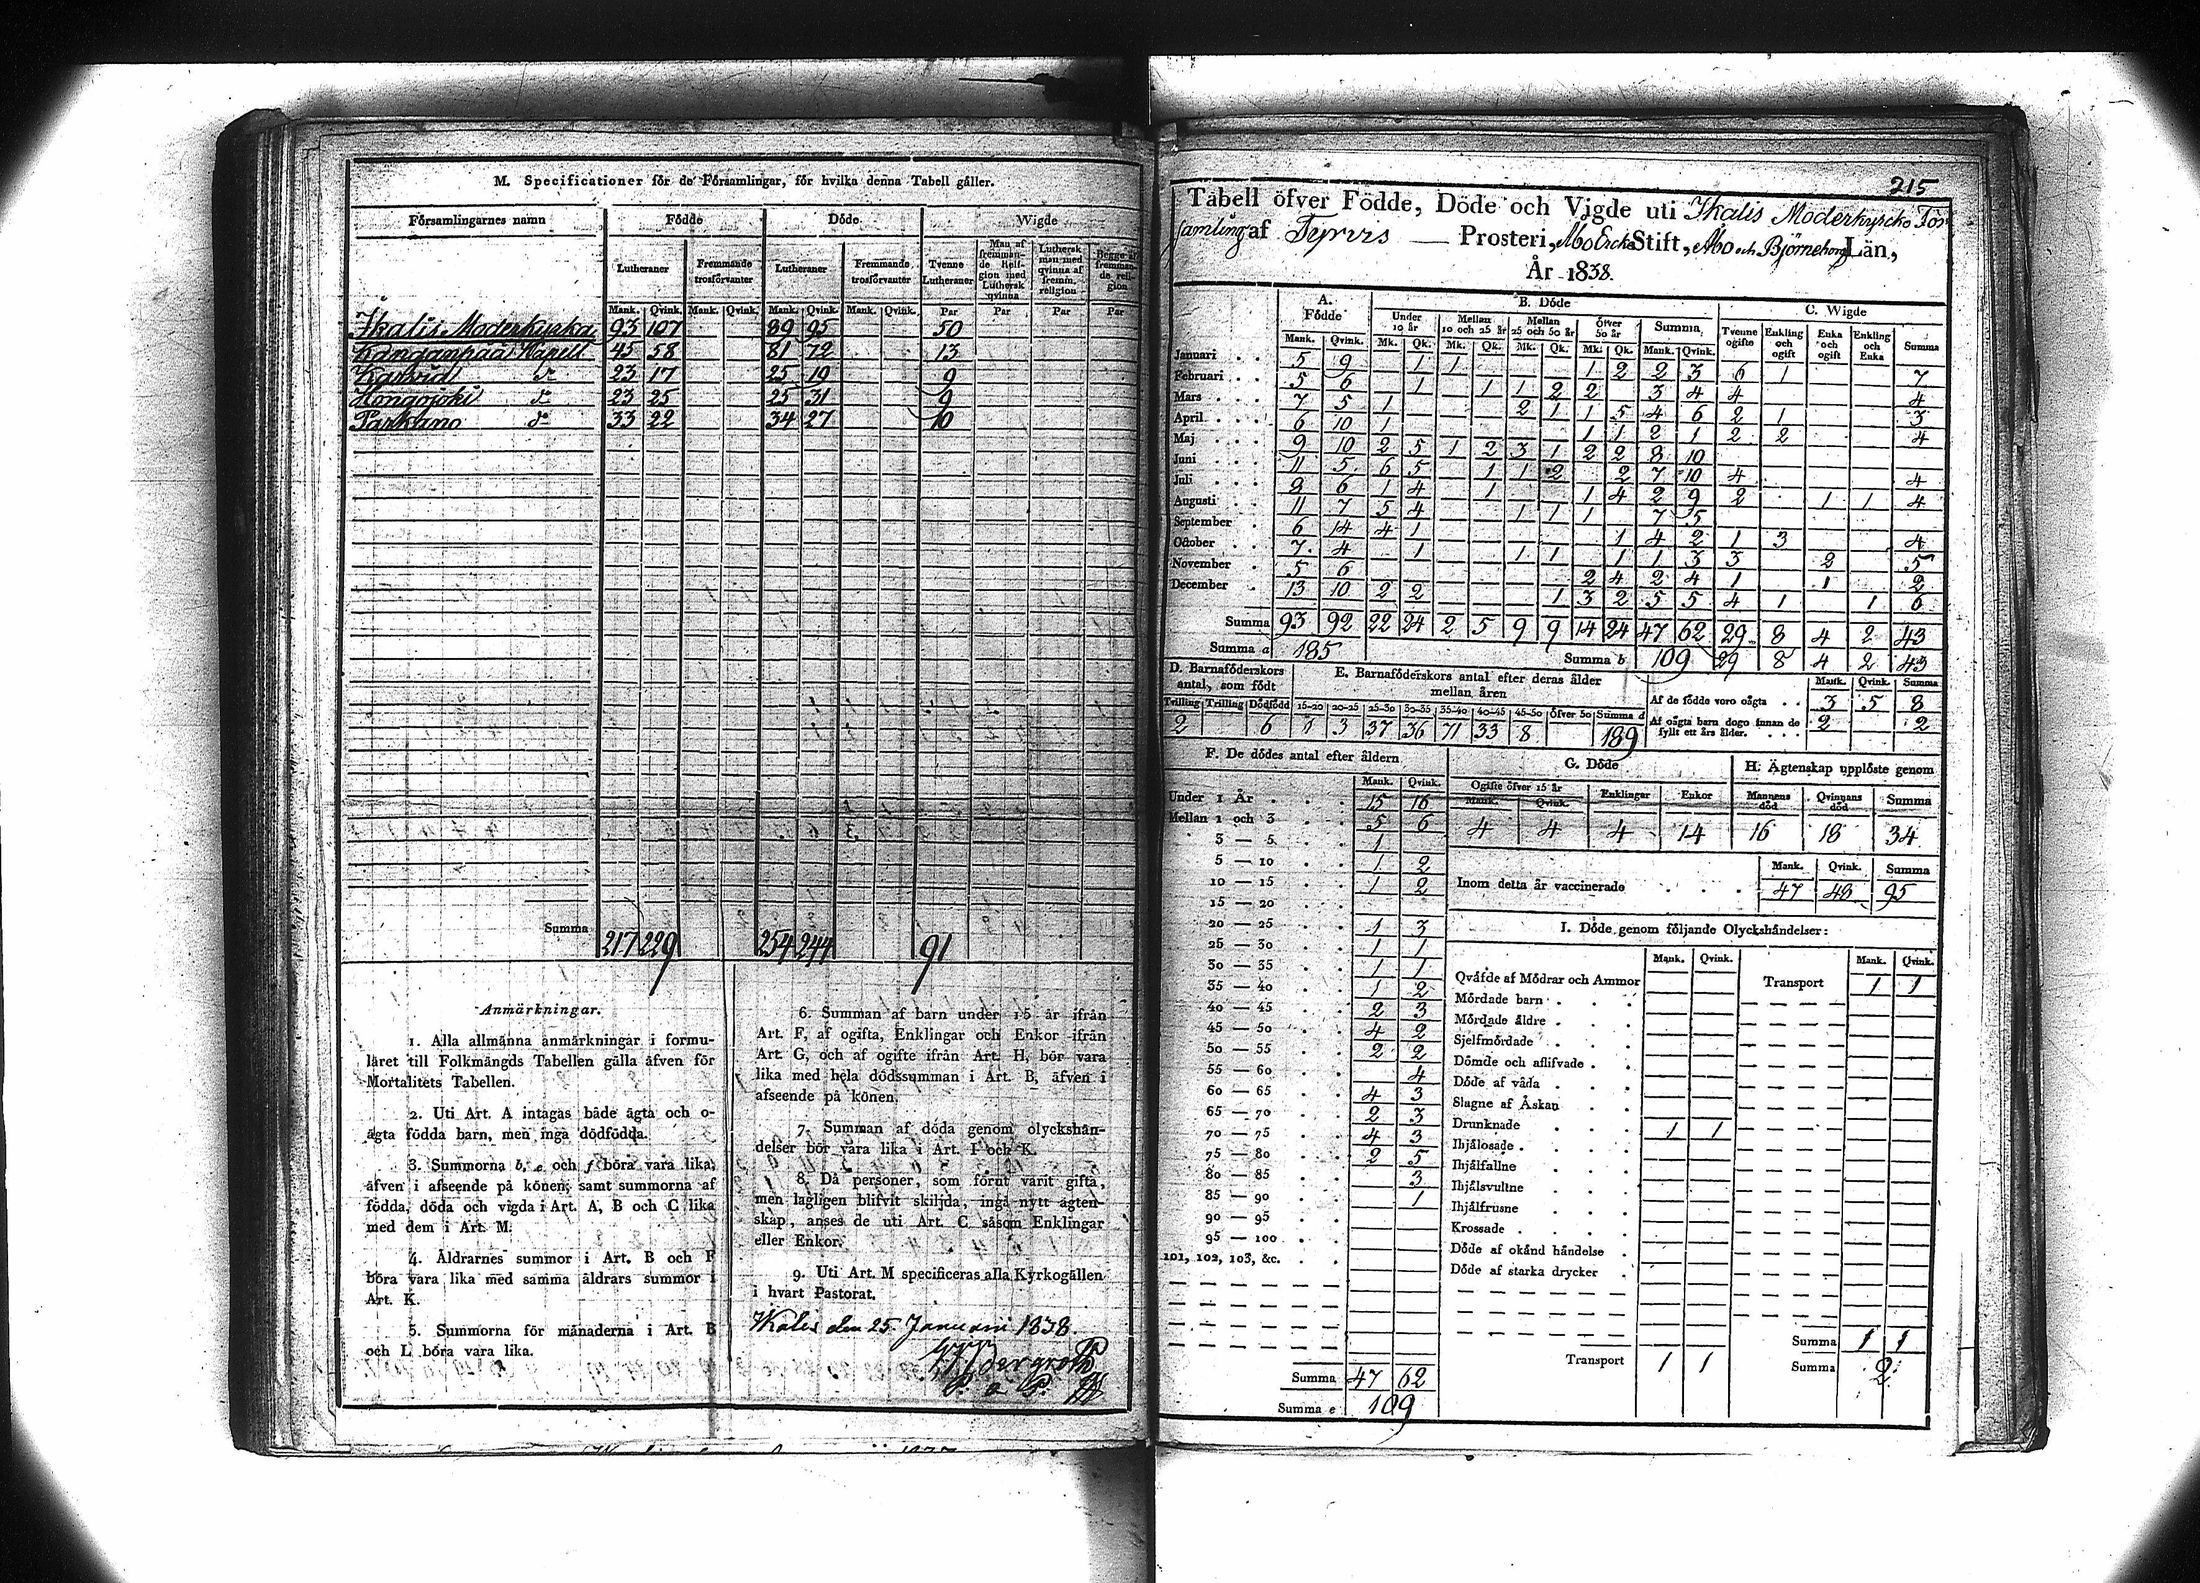 M. Specificationer för de Församlingar, för hvilka denna Tabell gäller.
Församlingarnes namn Födde Döde Wigde
Lutheraner Fremmande trosförvanter Lutheraner Fremmande trosförvanter Tvenne Lutheraner Man af fremmande Religion med Luthersk qvinna Luthersk man med qvinna af fremm. religion Begge af fremmande religion
Mank. Qvink. Mank. Qvink. Mank. Qvink. Mank. Qvink. Par Par Par Par
Ikalis Moderkyrka 93 107 89 95 50
Kanganpää Kapell 45 58 81 72 13
Kaskvidl d:o 23 17 25 19 9
Hongojoki d:o 23 25 25 31 9
Parkano d:o 33 22 34 27 10
Summa 217 229 254 244 91
Anmärkningar.
1. Alla allmänna anmärkningar i formu-
läret till Folkmängds Tabellen gälla äfven för
Mortalitets Tabellen.
2. Uti Art. A intagas både ägta och o-
ägta födda barn, men inga dödfödda.
3. Summorna b, e och f böra vara lika,
äfven i afseende på könen; samt summorna af
födda, döda och vigda i Art. A, B och C lika
med dem i Art. M.
4. Åldrarnes summor i Art. B och F
böra vara lika med samma åldrars summor i
Art. K.
5. Summorna för månaderna i Art. B
och L böra vara lika.
6. Summan af barn under 15 år ifrån
Art. F, af ogifta, Enklingar och Enkor ifrån
Art. G, och af ogifte ifrån Art. H, bör vara
lika med hela dödssumman i Art. B, äfven i
afseende på könen.
7. Summan af döda genom olyckshän-
delser bör vara lika i Art. I och K.
8. Då personer, som förut varit gifta,
men lagligen blifvit skiljda, ingå nytt ägten-
skap, anses de uti Art. C såsom Enklingar
eller Enkor.
9. Uti Art. M specificeras alla Kyrkogällen
i hvart Pastorat.
Ikalis den 25 Januari 1838.
215
Tabell öfver Födde, Döde och Vigde uti Ikalis Moderkyrcko För
samling af Tyrvis Prosteri, Åbo Ercke Stift, Åbo och Björneborgs Län,
År 1838.
A. Födde B. Döde C. Wigde
Under 10 år Mellan 10 och 25 år Mellan 25 och 50 år Öfver 50 år Summa Tvenne ogifte Enkling och ogift Enka och ogift Enkling och Enka Summa
Mank. Qvink. Mk. Qk. Mk. Qk. Mk. Qk. Mk. Qk. Mank. Qvink.
Januari 5 9 1 1 1 2 2 3 6 1 7
Februari 5 6 1 1 1 2 2 3 4 4 4
Mars 7 5 1 2 1 1 5 4 6 2 1 3
April 6 10 1 1 1 2 1 2 2 4
Maj 9 10 2 5 1 2 3 1 2 2 8 10
Juni 11 5 6 5 1 1 2 2 7 10 4 4
Juli 8 6 1 4 1 1 4 2 9 2 1 1 4
Augusti 11 7 5 4 1 1 1 7 5
September 6 14 4 1 1 4 2 1 3 4
October 7 4 1 1 1 1 1 3 3 2 5
November 5 6 2 4 2 4 1 1 2
December 13 10 2 2 1 3 2 5 5 4 1 1 6
Summa 93 92 22 24 2 5 9 9 14 24 47 62 29 8 4 2 43
Summa a 185 Summa b 109 29 8 4 2 43
D. Barnaföderskors antal, som födt
E. Barnaföderskors antal efter deras ålder mellan åren
Tvilling Trilling Dödfödd 15-20 20-25 25-30 30-35 35-40 40-45 45-50 Öfver 50 Summa d
2 6 1 3 37 36 71 33 8 189
Mank. Qvink. Summa
Af de födde voro oägta 3 5 8
Af oägta barn dogo innan de fyllt ett års ålder. 2 2
F. De dödes antal efter åldern
Mank. Qvink.
Under 1 År 15 16
Mellan 1 och 3 5 6
3 — 5 1
5 — 10 1 2
10 — 15 1 2
15 — 20
20 — 25 1 3
25 — 30 1 1
30 — 35 1 1
35 — 40 1 2
40 — 45 2 3
45 — 50 4 2
50 — 55 2 2
55 — 60 4
60 — 65 4 3
65 — 70 2 3
70 — 75 4 3
75 — 80 2 5
80 — 85 3
85 — 90 1
90 — 95
95 — 100
101, 102, 103, &c.
Summa 47 62
Summa e 109
G. Döde
Ogifte öfver 15 år Enklingar Enkor
Mank. Qvink.
4 4 4 14
H. Ägtenskap upplöste genom
Mannens död Qvinnans död Summa
16 18 34
Mank. Qvink. Summa
Inom detta år vaccinerade 47 48 95
I. Döde genom följande Olyckshändelser:
Mank. Qvink. Mank. Qvink.
Qväfde af Mödrar och Ammor Transport 1 1
Mördade barn
Mördade äldre
Sjelfmördade
Dömde och aflifvade
Döde af våda
Slagne af Åskan
Drunknade 1 1
Ihjälosade
Ihjälfallne
Ihjälsvultne
Ihjälfrusne
Krossade
Döde af okänd händelse
Döde af starka drycker
Summa 1 1
Transport 1 1 Summa 2